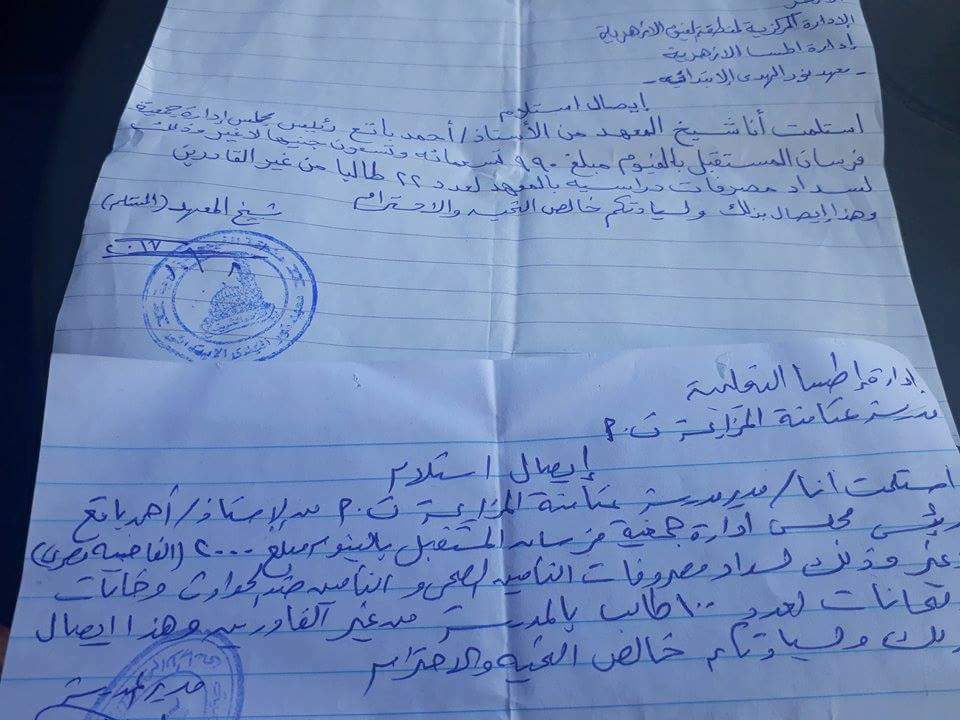 الادارة المركزية لمنطقة الفيوم الازهرية
إدارة اطسا الازهرية
- معهد نور الهدى الابتدائى -
إيصال استلام
استلمت أنا شيخ المعهد من الأستاذ/ أحمد باتع رئيس مجلس ادارة جمعية
فرسان المستقبل بالفيوم مبلغ ٩٩٠ تسعمائه وتسعون جنيها لاغير وذلك
لسداد مصروفات دراسيه بالمعهد لعدد ٢٢ طالبا من غير القادرين
وهذا إيصال بذلك ولسيادتكم خالص التحيه والاحترام
شيخ المعهد (المستلم)
٢٠١٧
إدارة إطسا التعليمية
مدرسة عتامنة المزارعة ت.م
إيصال استلام
استلمت أنا/ مدير مدرسة عتامنة المزارعة ت.م من الاستاذ/ أحمد باتع
رئيس مجلس ادارة جمعية فرسان المستقبل بالفيوم مبلغ ٢٠٠٠ (الفا جنيه مصرى)
وذلك لسداد مصروفات التأمين الصحى والتأمين ضد الحوادث وخامات
لعدد ١٠٠ طالب بالمدرسة من غير القادرين وهذا ايصال
ولسيادتكم خالص التحيه والاحترام
مدير المدرسة